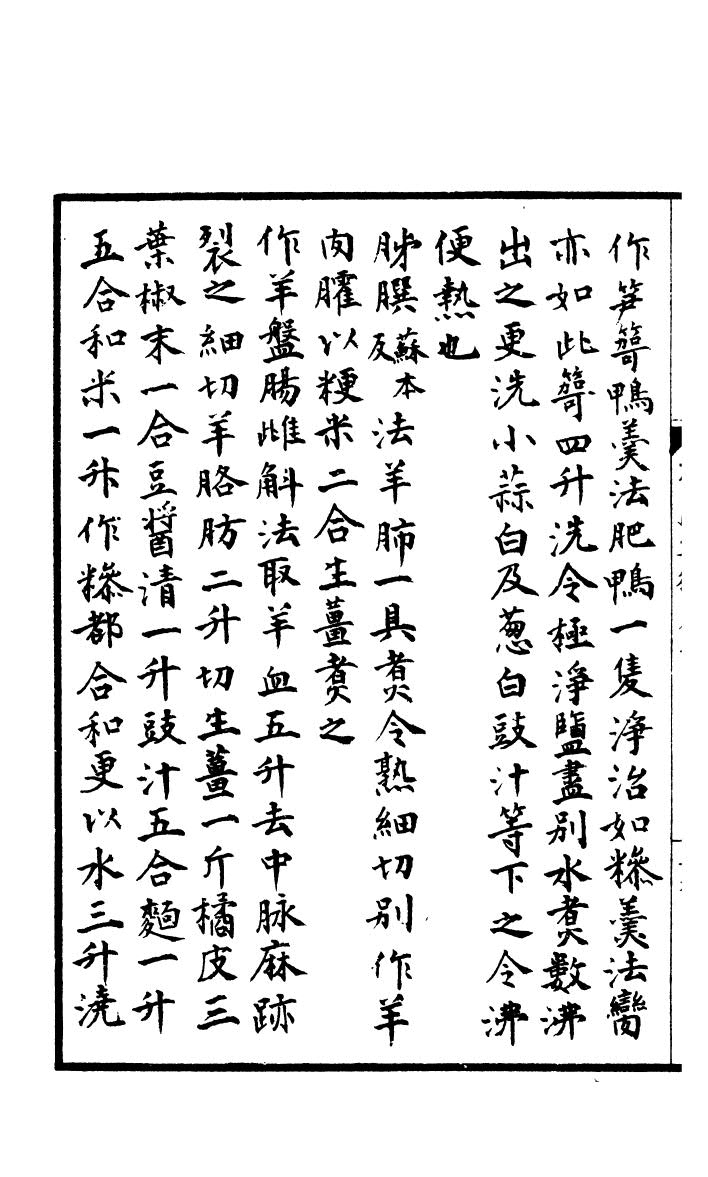 作笋䈚鴨羹法肥鴨一隻淨治如糝羹法臠
亦如此䈚四升洗令極淨鹽盡別水煑數沸
出之更洗小蒜白及葱白豉汁等下之令沸
便熟也
肺䐹蘇本反法羊肺一具煑令熟細切別作羊
肉臛以粳米二合生薑煑之
作羊盤腸雌斛法取羊血五升去中脉麻跡
裂之細切羊胳肪二升切生薑一斤橘皮三
葉椒末一合豆醬清一升豉汁五合麵一升
五合和米一升作糝都合和更以水三升澆